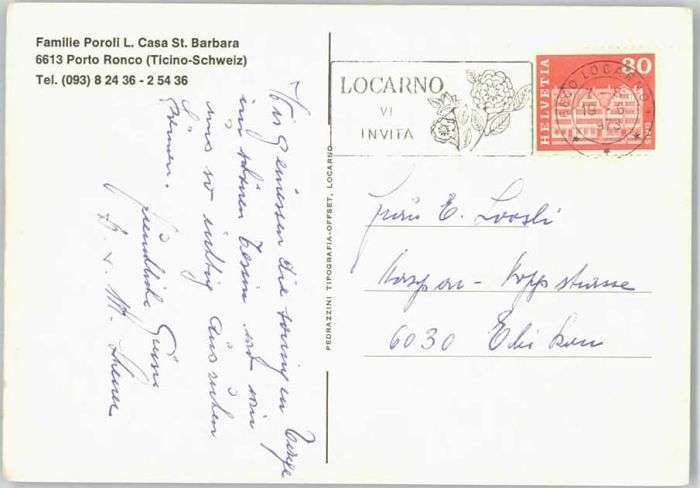 Familie Poroli L. Casa St. Barbara
6613 Porto Ronco (Ticino-Schweiz)
Tel. (093) 8 24 36 - 2 54 36
Wir geniessen die sonnigen Tage
im schönen Tessin und
uns so richtig ausruhen
können.
freundliche Grüsse
LOCARNO
VI
INVITA
HELVETIA
30
6600 LOCARNO 1
1973
PEDRAZZINI TIPOGRAFIA-OFFSET, LOCARNO
Frau E. Loosli
Kaspar-Koppstrasse
6030 Ebikon